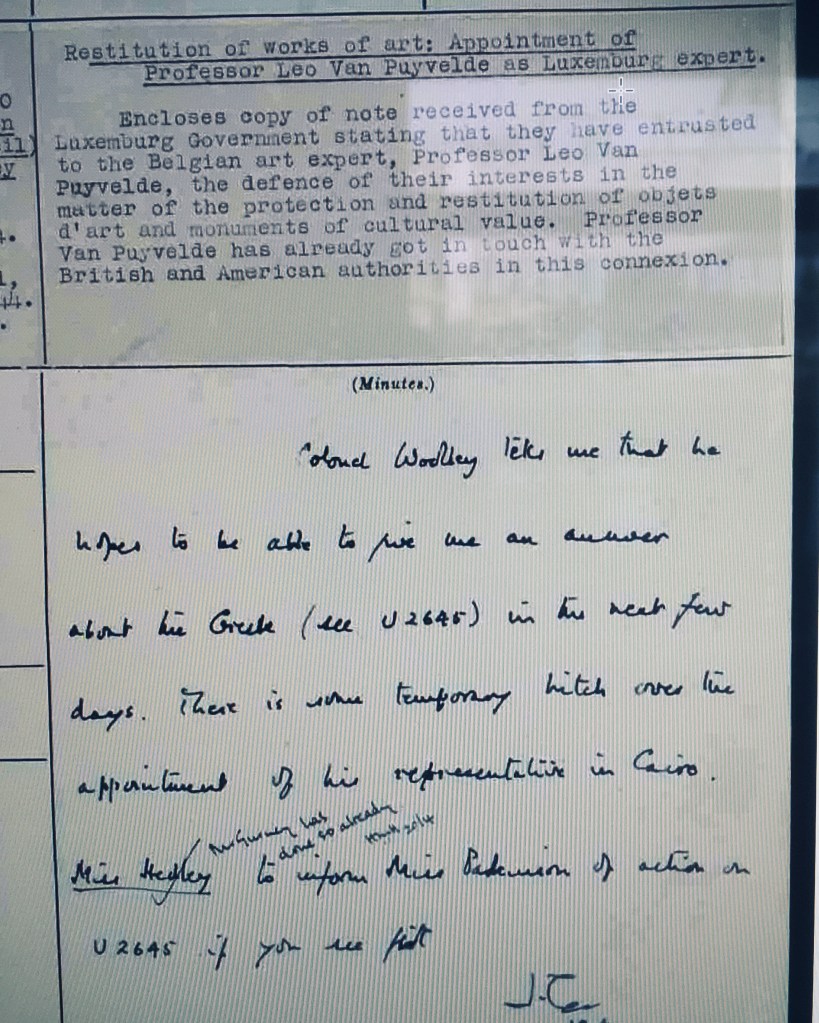 o
n
il)
ey
4.
1,
44.
.
Restitution of works of art: Appointment of
Professor Leo Van Puyvelde as Luxemburg expert.
Encloses copy of note received from the
Luxemburg Government stating that they have entrusted
to the Belgian art expert, Professor Leo Van
Puyvelde, the defence of their interests in the
matter of the protection and restitution of objets
d'art and monuments of cultural value. Professor
Van Puyvelde has already got in touch with the
British and American authorities in this connexion.
(Minutes.)
Colonel Woolley tells me that he
hopes to be able to give me an answer
about the Greek (see U 2645) in the next few
days. There is some temporary hitch over the
appointment of his representative in Cairo.
has
done so already
20/4
Miss Hedley to inform Miss of action on
U 2645 if you see fit